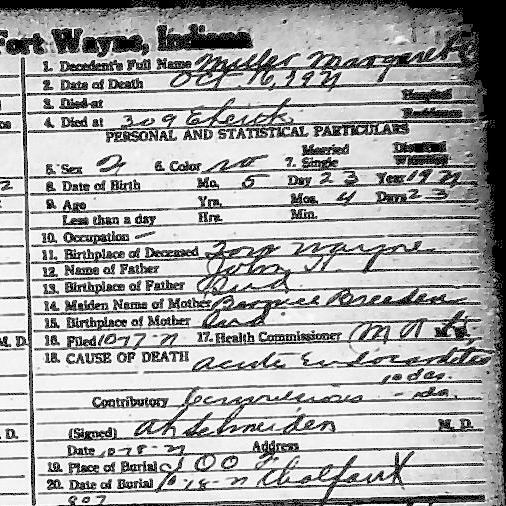 Fort Wayne, Indiana
1. Decedent's Full Name Miller Margaret
2. Date of Death Oct 16, 1921
3. Died at Hospital
4. Died at 309 Residence
PERSONAL AND STATISTICAL PARTICULARS
5. Sex F 6. Color W 7. Single Married Divorced
8. Date of Birth Mo. 5 Day 23 Year 1921
9. Age Yrs. Mos. 4 Days 23
Less than a day Hrs. Min.
10. Occupation —
11. Birthplace of Deceased Fort Wayne
12. Name of Father John H.
13. Birthplace of Father Ind
14. Maiden Name of Mother Bernice Breeden
15. Birthplace of Mother Ind
M. D. 16. Filed 17. Health Commissioner
18. CAUSE OF DEATH Acute Endocarditis
10 das.
Contributory Convulsions
D. (Signed) AH Schneider M. D.
Date Address
19. Place of Burial I O O F
20. Date of Burial 10-18-21 Chalfant
807